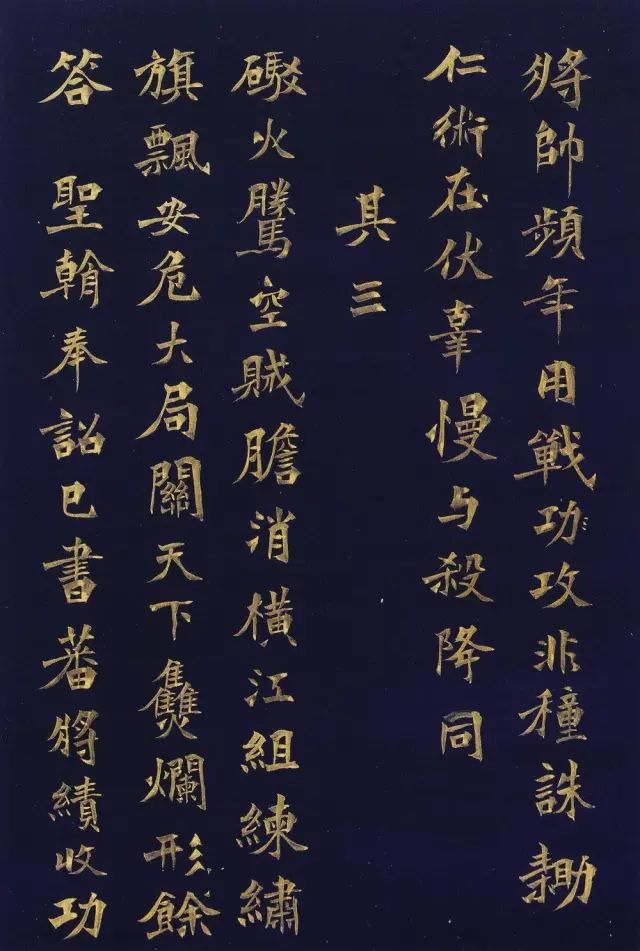 將帥頻年用戰功攻非種誅鋤
仁術在伏辜慢与殺降同
其三
礮火騰空賊膽消橫江組練繡
旗飄安危大局關天下爛形餘
答 聖翰奉詔已書蕃將績收功